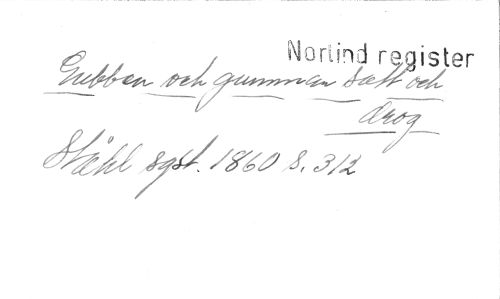 Norlind register
Gubben och gumman satt och
drog
Ståhl sgst. 1860 s. 312